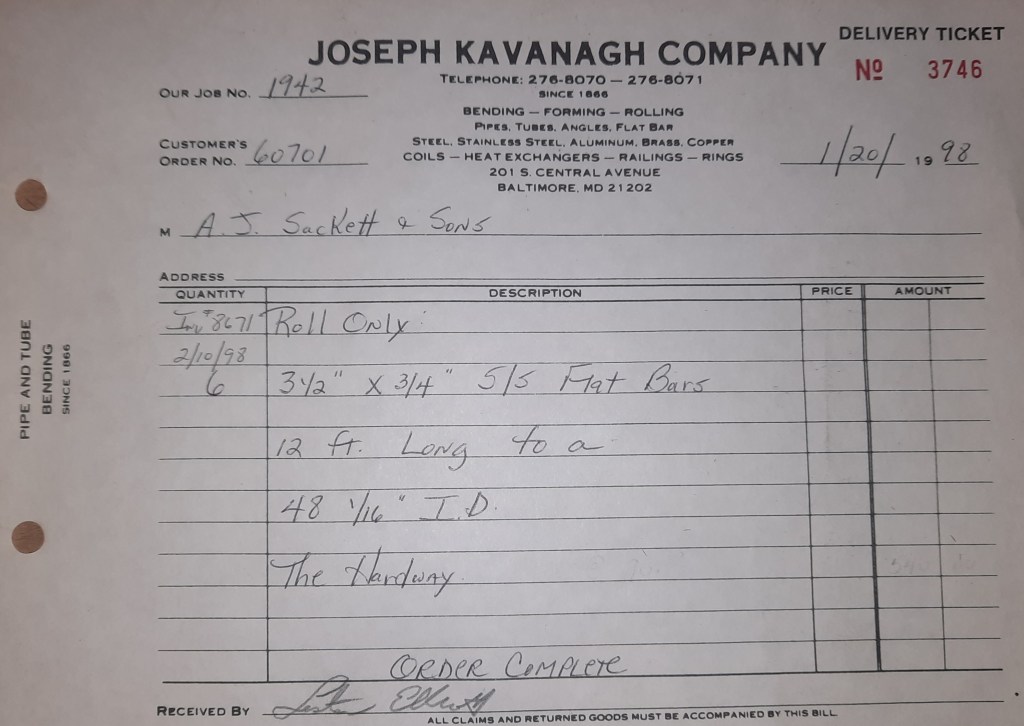 DELIVERY TICKET
JOSEPH KAVANAGH COMPANY
Nº 3746
TELEPHONE: 276-8070 — 276-8071
SINCE 1866
OUR JOB NO. 1942
BENDING — FORMING — ROLLING
PIPES, TUBES, ANGLES, FLAT BAR
STEEL, STAINLESS STEEL, ALUMINUM, BRASS, COPPER
COILS — HEAT EXCHANGERS — RAILINGS — RINGS
201 S. CENTRAL AVENUE
BALTIMORE, MD 21202
CUSTOMER'S
ORDER NO. 60701
1/20/ 19 98
M A. J. Sackett & Sons
ADDRESS
QUANTITY DESCRIPTION PRICE AMOUNT
Inv #8671 Roll Only:
2/10/98
6 3 1/2" X 3/4" S/S Flat Bars
12 ft. Long to a
48 1/16" I.D.
The Hardway
ORDER COMPLETE
RECEIVED BY
ALL CLAIMS AND RETURNED GOODS MUST BE ACCOMPANIED BY THIS BILL
PIPE AND TUBE
BENDING
SINCE 1866